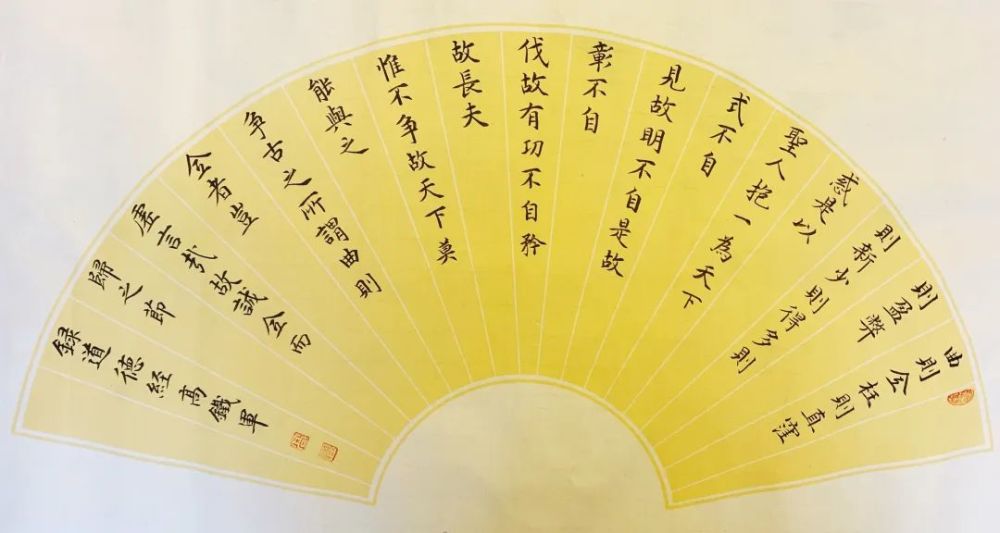 曲則全枉則直窪
則盈弊
則新少則得多則
惑是以
聖人抱一為天下
式不自
見故明不自是故
彰不自
伐故有功不自矜
故長夫
惟不争故天下莫
能與之
争古之所謂曲則
全者豈
虛言哉故誠全而
歸之節
録道德經高鐵軍